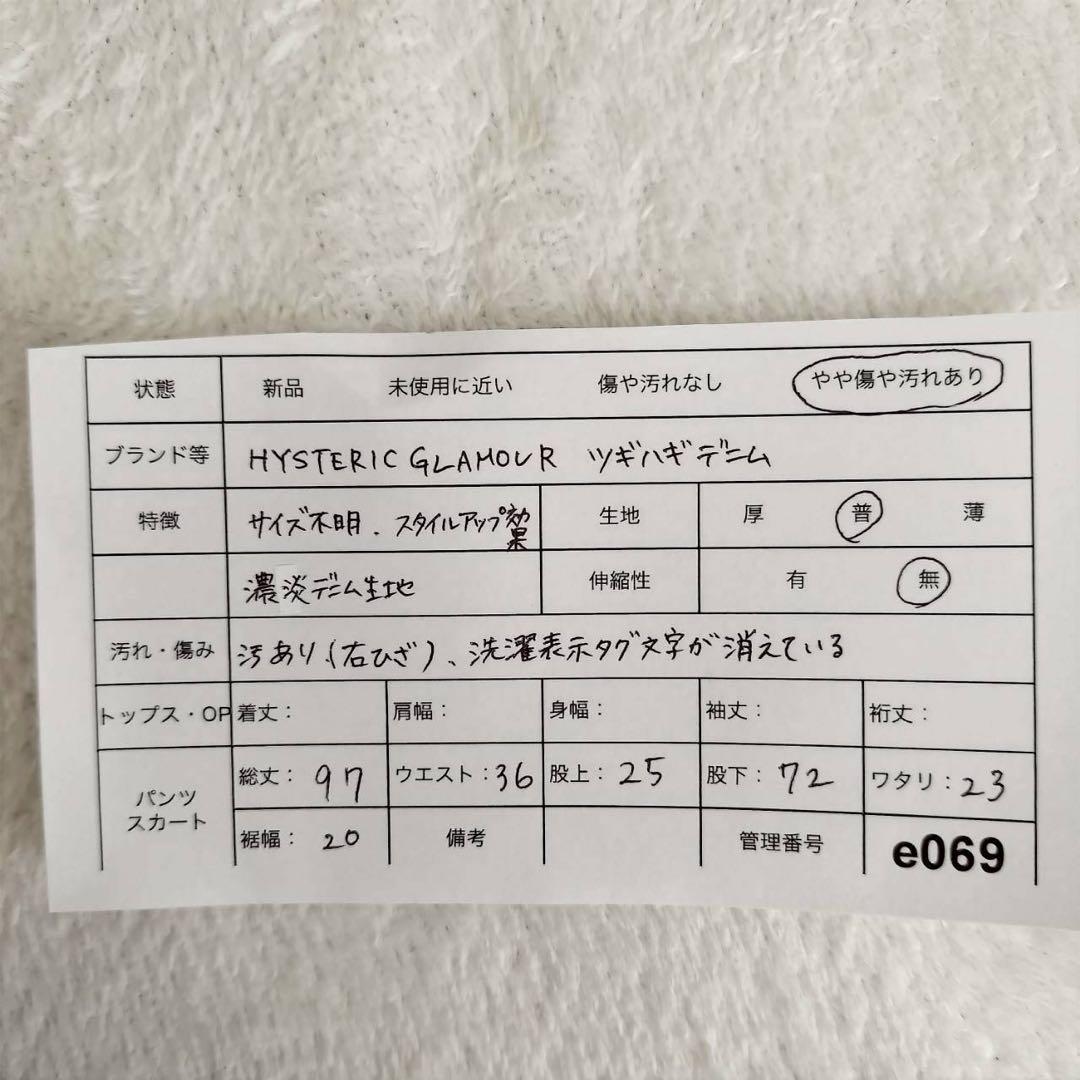 状態 新品 未使用に近い 傷や汚れなし やや傷や汚れあり
ブランド等 HYSTERIC GLAMOUR ツギハギデニム
特徴 サイズ不明、スタイルアップ効果 生地 厚 普 薄
濃淡デニム生地 伸縮性 有 無
汚れ・傷み 汚あり(右ひざ)、洗濯表示タグ文字が消えている
トップス・OP 着丈: 肩幅: 身幅: 袖丈: 裄丈:
パンツ スカート 総丈: 97 ウエスト:36 股上: 25 股下: 72 ワタリ:23
裾幅: 20 備考 管理番号 e069